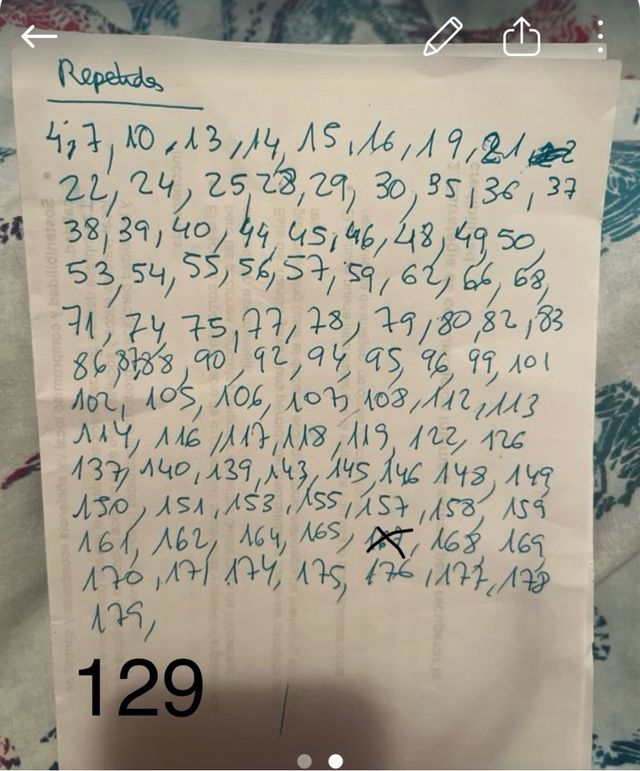 Repetidos
4, 7, 10, 13, 14, 15, 16, 19, 21,
22, 24, 25, 28, 29, 30, 35, 36, 37
38, 39, 40, 44, 45, 46, 48, 49 50,
53, 54, 55, 56, 57, 59, 62, 66, 68,
71, 74, 75, 77, 78, 79, 80, 82, 83
86, 87, 88, 90, 92, 94, 95, 96, 99, 101
102, 105, 106, 107, 108, 112, 113
114, 116, 117, 118, 119, 122, 126
137, 140, 139, 143, 145, 146 148, 149
150, 151, 153, 155, 157, 158, 159
161, 162, 164, 165, 168, 169
170, 171 174, 175, 176, 177, 178
179,
129